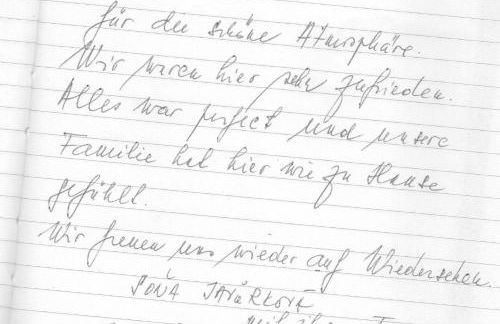 für die schöne Atmosphäre.
Wir waren hier sehr zufrieden.
Alles war perfect und unsere
Familie hat hier wie zu Hause
gefühlt.
Wir freuen uns wieder auf Wiedersehen.
SOŇA
mit